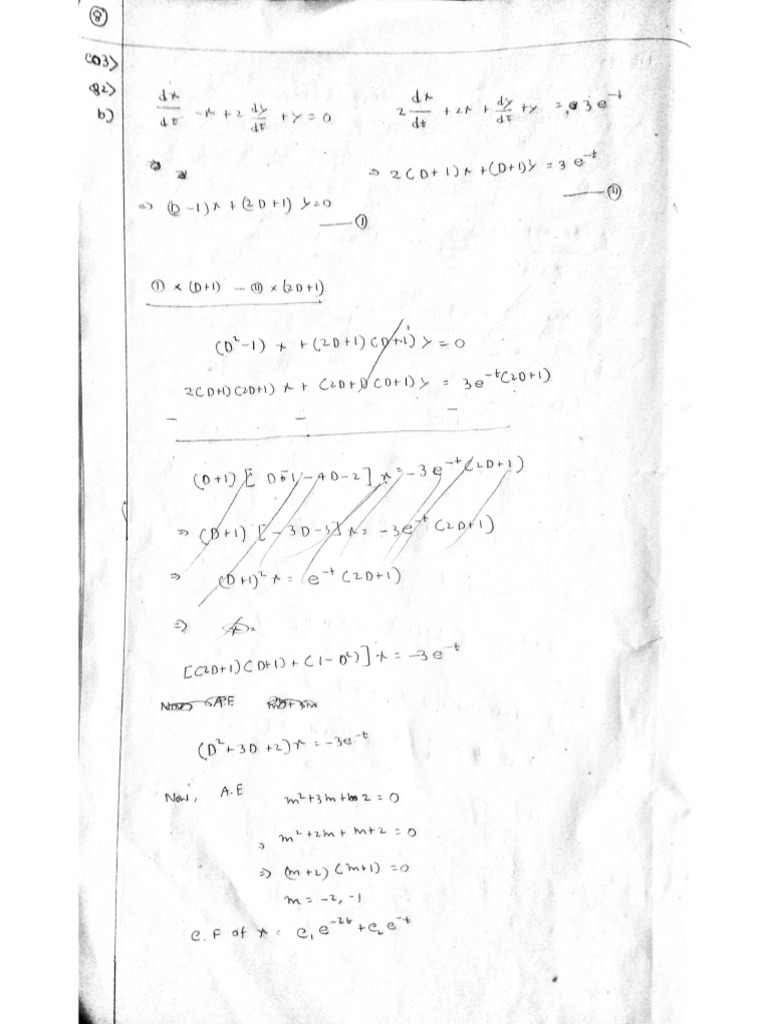 8
CO3>
Q2>
b)
dx/dt - x + 2 dy/dt + y = 0    2 dx/dt + 2x + dy/dt + y = 3e^-t
⇒ 2(D+1)x + (D+1)y = 3e^-t —(II)
⇒ (D-1)x + (2D+1)y=0 —(I)
(I) × (D+1) - (II) × (2D+1)
(D²-1)x + (2D+1)(D+1)y = 0
2(D+1)(2D+1)x + (2D+1)(D+1)y = 3e^-t(2D+1)
-    -    -
(D+1)[D-1-4D-2]x = -3e^-t(2D+1)
⇒ (D+1)[-3D-3]x = -3e^-t(2D+1)
⇒ (D+1)²x = e^-t(2D+1)
⇒
[(2D+1)(D+1)+(1-D²)]x = -3e^-t
Now, A.E
(D²+3D+2)x = -3e^-t
Now, A.E    m²+3m+2=0
⇒ m²+2m+m+2=0
⇒ (m+2)(m+1)=0
m = -2, -1
C.F of x = c₁e^-2t + c₂e^-t